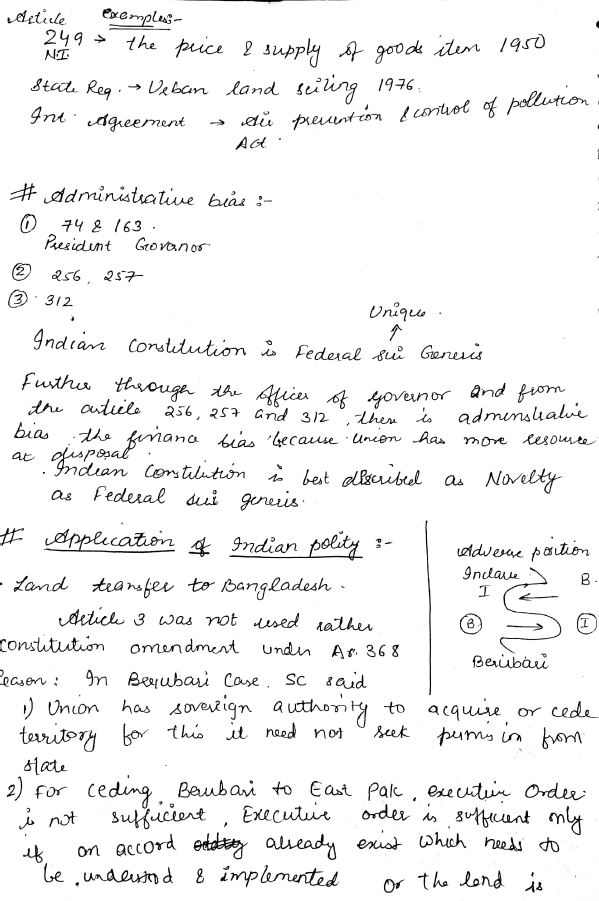 Article examples:-
249 → the price & supply of goods item 1950
NI
State Req. → Urban land seiling 1976.
Int. Agreement → Air prevention & control of pollution
Act.
# Administrative bias :-
① 74 & 163.
President Governor
② 256, 257
③ 312
Unique.
↑
Indian Constitution is Federal sui Generis
Further through the offices of governor and from
the article 256, 257 and 312, there is adminstrative
bias. the finance bias because union has more resource
at disposal.
. Indian Constitution is best described as Novelty
as Federal sui generis.
# Application of Indian polity :-
. Land transfer to Bangladesh.
Article 3 was not used rather
constitution amendment under Ar. 368
Reason: In Berubari Case, SC said
1) Union has sovereign authority to acquire or cede
territory for this it need not seek permsion from
state
2) For ceding Berubari to East Pak, executive Order
is not sufficient, Executive order is sufficient only
if an accord already exist which needs to
be understood & implemented or the land is
Adverse position
Inclave B.
I
Ⓑ → Ⓘ
Berubari